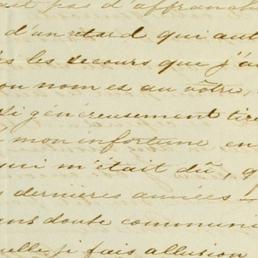 pas d'affranch
d'un retard qui aut
les secours que j'a
nom et au vôtre,
si généreusement tiré
mon infortune en
qui m'était dû, q
dernières années —
sans doute communi
elle je fais allusion